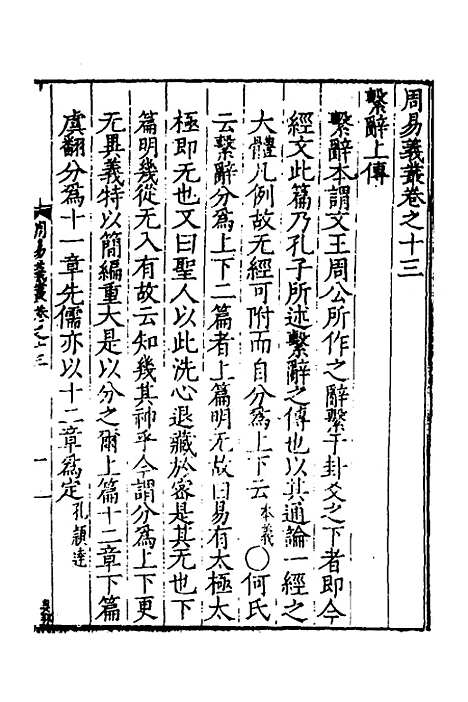 周易義叢卷之十三
繫辭上傳
繫辭本謂文王周公所作之辭繫于卦爻之下者即今
經文此篇乃孔子所述繫辭之傳也以其通論一經之
大體凡例故无經可附而自分爲上下云本義〇何氏
云繫辭分爲上下二篇者上篇明无故曰易有太極太
極即无也又曰聖人以此洗心退藏於密是其无也下
篇明幾從无入有故云知幾其神乎今謂分爲上下更
无異義特以簡編重大是以分之爾上篇十二章下篇
虞翻分爲十一章先儒亦以十二章爲定孔穎達
周易義叢卷之十三
一